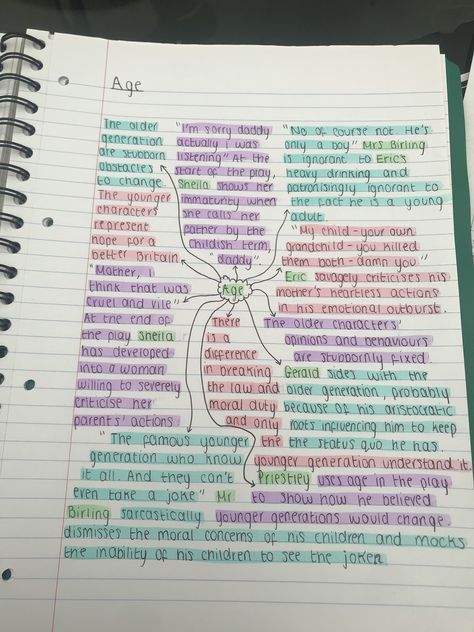 Age
The older
generation
are stubborn
obstacles
to change.
"I'm sorry daddy
actually I was
listening" At the
start of the play,
Sheila shows her
immaturity when
she calls her
father by the
childish term,
"daddy".
"No of course not He's
only a boy" Mrs Birling
is ignorant to Eric's
heavy drinking and
patronisingly ignorant to
the fact he is a young
adult.
The younger
characters
represent
hope for a
better Britain.
"My child - your own
grandchild - you killed
them both - damn you"
Eric savagely criticises his
mother's heartless actions
in his emotional outburst.
Age
"Mother, I
think that was
cruel and vile"
At the end of
the play Sheila
has developed
into a woman
willing to severely
criticise her
parents' actions.
There
is a
difference
in breaking
the law and
moral duty
and only
the
younger generation understand it.
The older characters'
opinions and behaviours
are stubbornly fixed.
Gerald sides with the
older generation, probably
because of his aristocratic
roots influencing him to keep
the status quo he has.
"The famous younger
generation who know
it all. And they can't
even take a joke" Mr
Birling sarcastically
dismisses the moral concerns of his children and mocks
the inability of his children to see the joke.
Priestley uses age in the play
to show how he believed
younger generations would change.